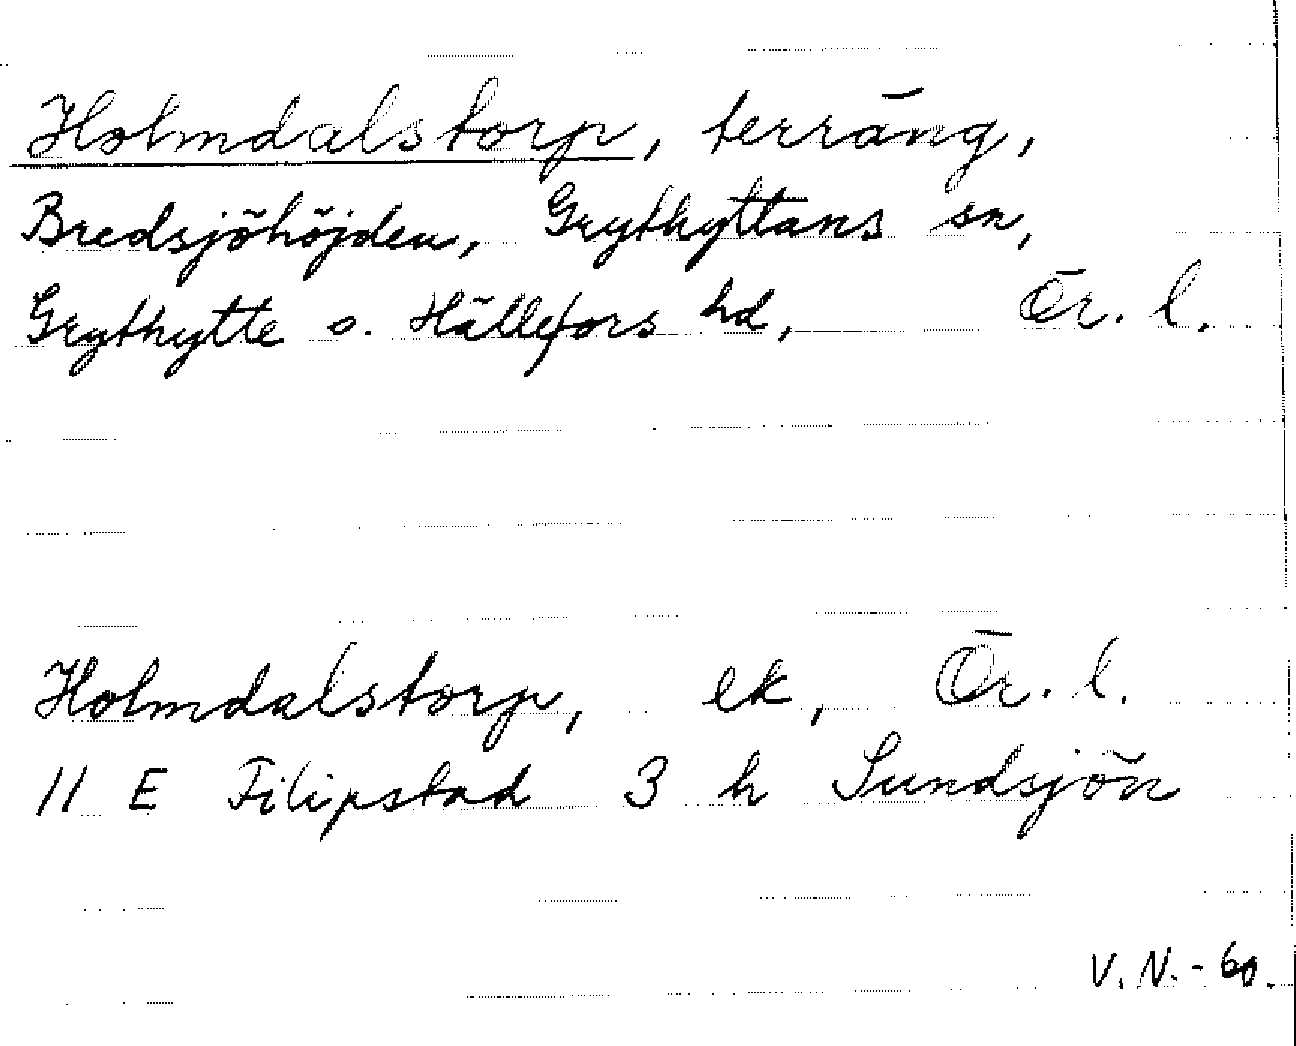 Holmdalstorp, terräng,
Bredsjöhöjden, Grythyttans sn,
Grythytte o. Hällefors hd, Ör. l.
Holmdalstorp, ek, Ör. l.
11 E Filipstad 3 h Sundsjön
V. N. - 60.